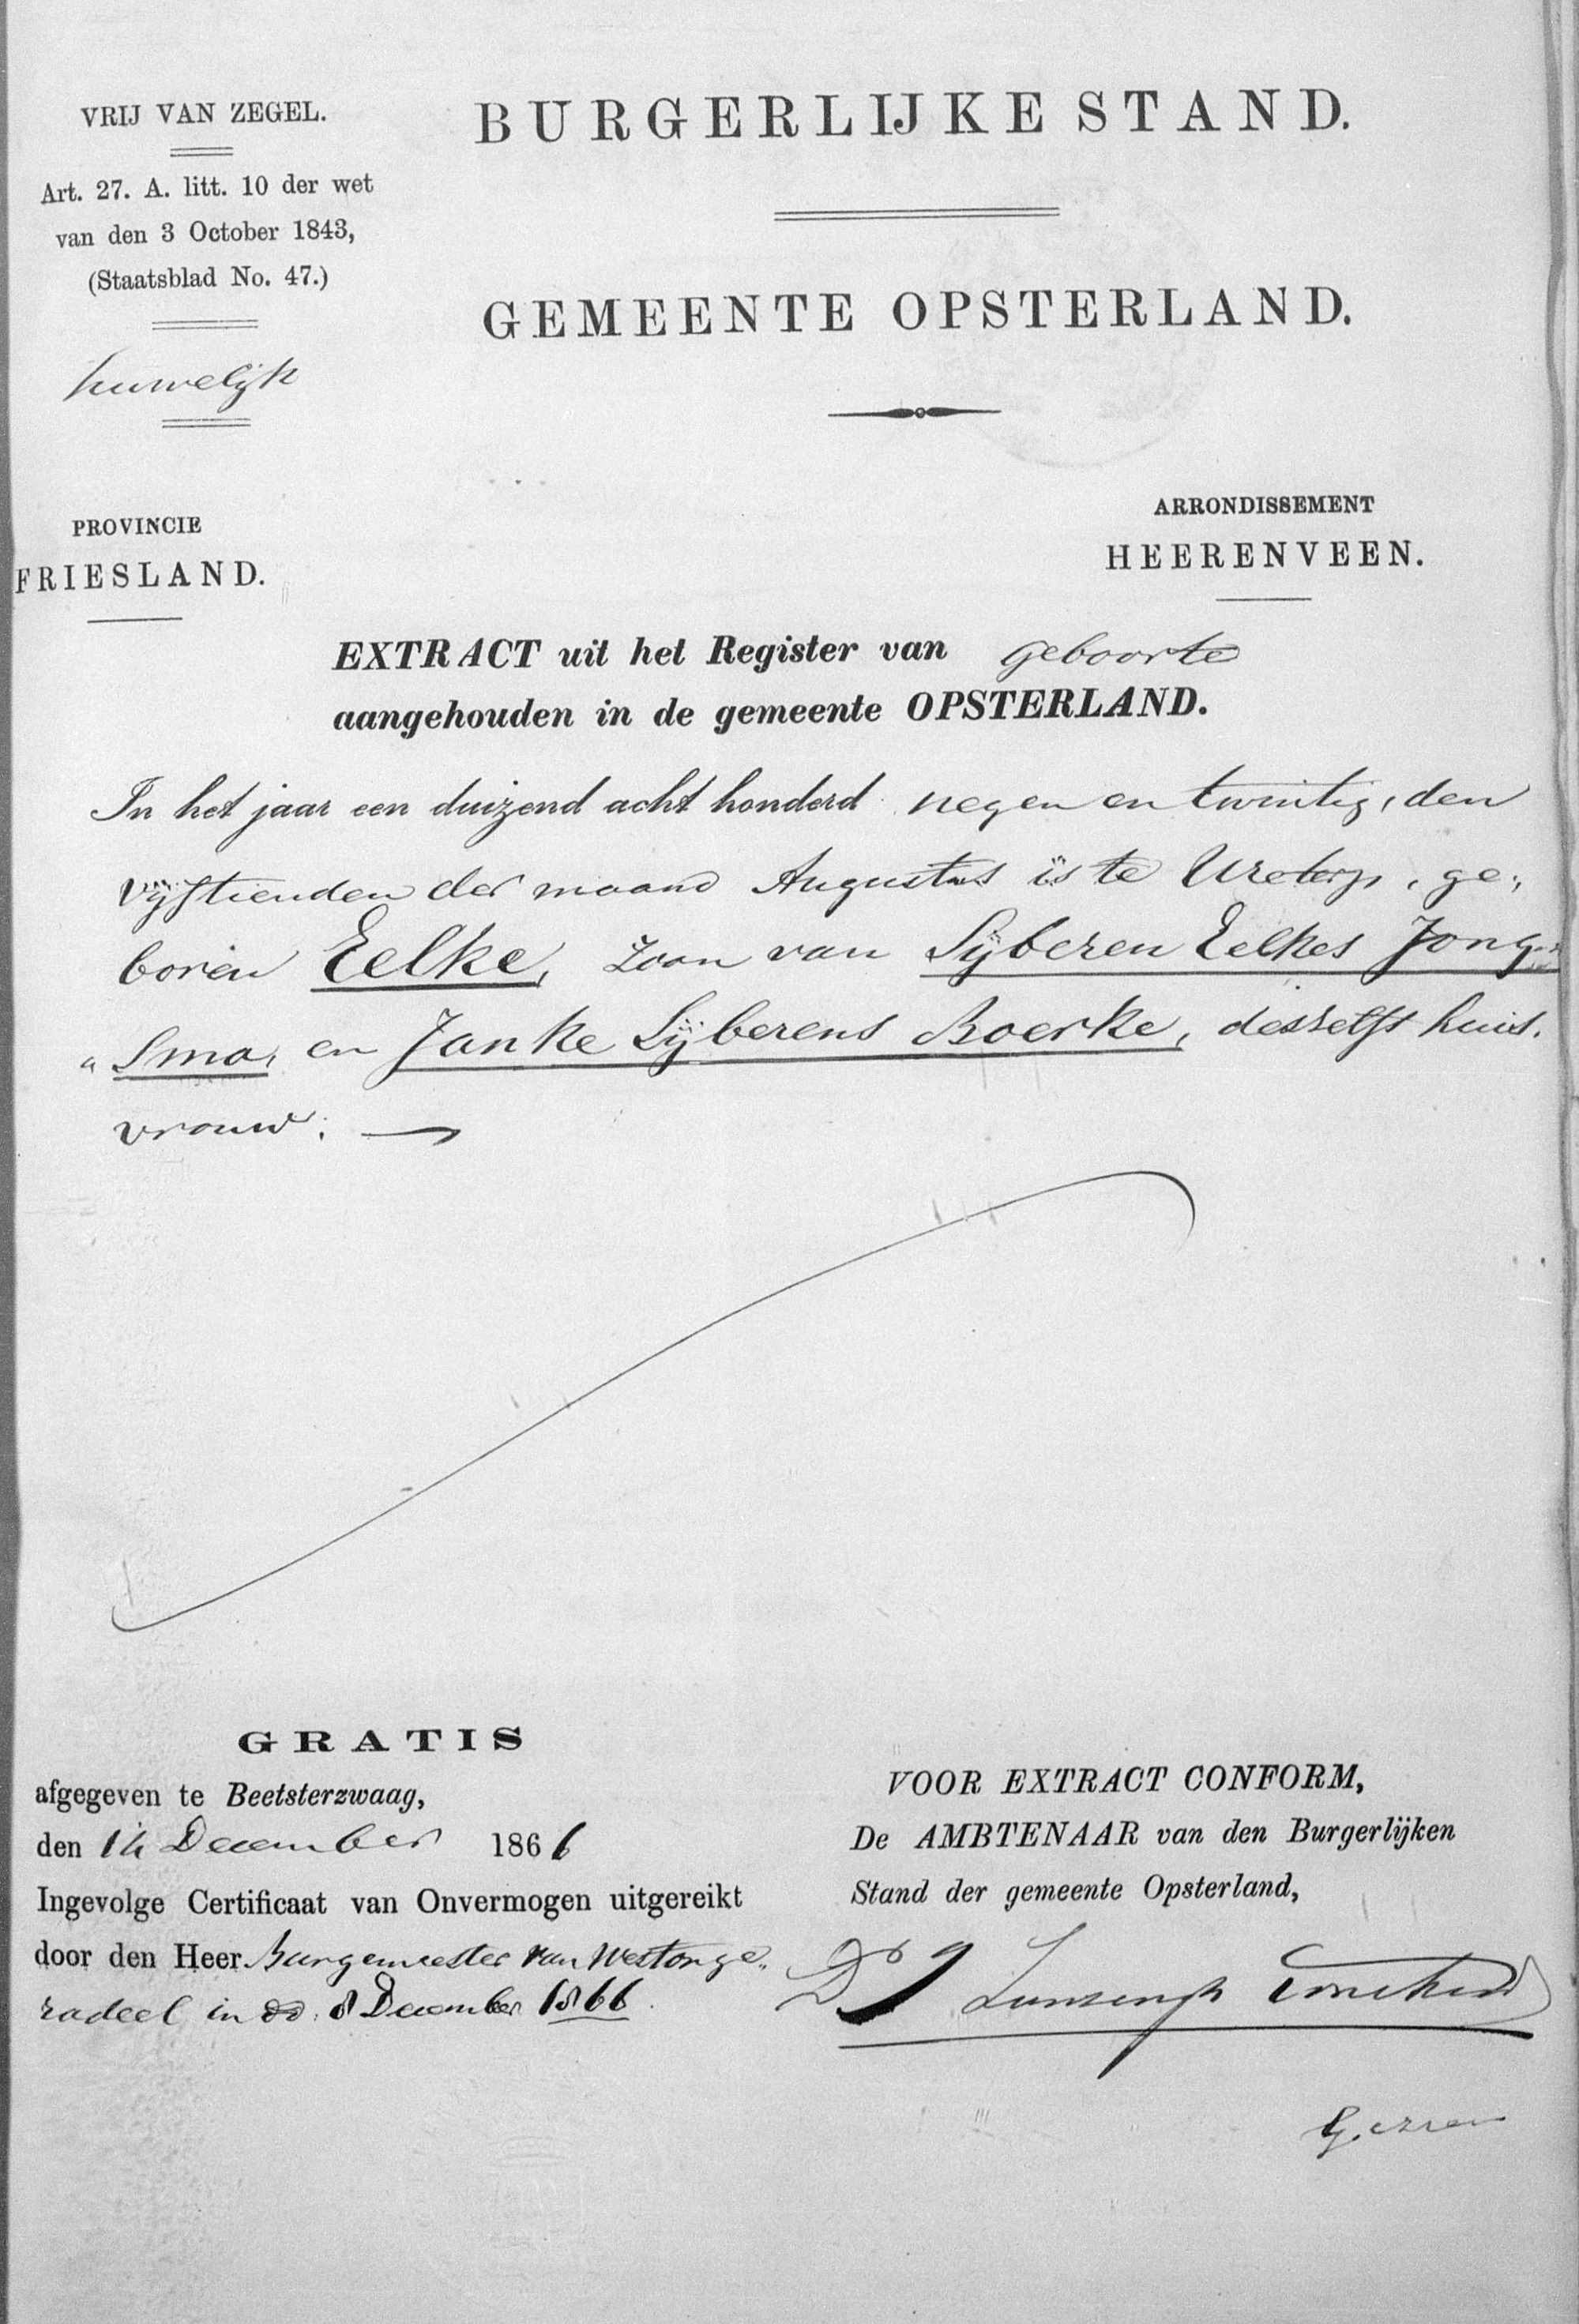 VRIJ VAN ZEGEL.
Art. 27. A. litt. 10 der wet
van den 3 October 1843,
(Staatsblad No. 47.)
huwelijk
BURGERLIJKE STAND.
GEMEENTE OPSTERLAND.
PROVINCIE
FRIESLAND.
ARRONDISSEMENT
HEERENVEEN.
EXTRACT uit het Register van geboorte
aangehouden in de gemeente OPSTERLAND.
In het jaar een duizend acht honderd negen en twintig, den
vijftienden der maand Augustus is te Ureterp, ge„
boren Eelke, zoon van Sijberen Eelkes Jong„
„sma, en Janke Sijberens Boerke, deszelfs huis.
vrouw.
GRATIS
afgegeven te Beetsterzwaag,
den 14 December 1866
Ingevolge Certificaat van Onvermogen uitgereikt
door den Heer Burgemeester van Westonge„
radeel in dd. 8 December 1866.
VOOR EXTRACT CONFORM,
De AMBTENAAR van den Burgerlijken
Stand der gemeente Opsterland,